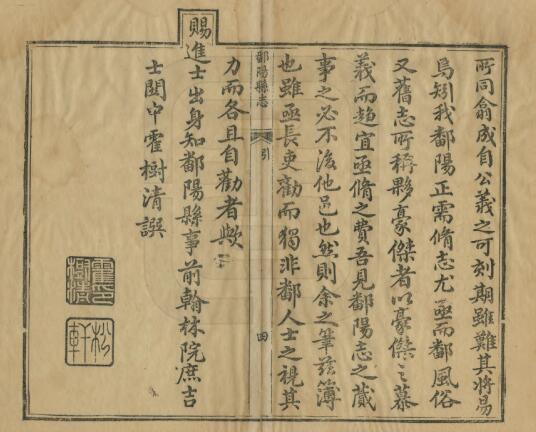 所同翕成自公義之可刻期雖難其將易
焉矧我鄱陽正需脩志尤亟而鄱風俗
又舊志所稱夥豪傑者以豪傑之慕
義而趋宜亟脩之費吾見鄱陽志之蕆
事之必不後他邑也然則余之筆茲簿
也雖亟長吏勸而獨非鄱人士之視其
鄱陽縣志
引
四
力而各且自勸者歟
賜進士出身知鄱陽縣事前翰林院庶吉
士関中霍樹清譔
霍印樹清
松軒